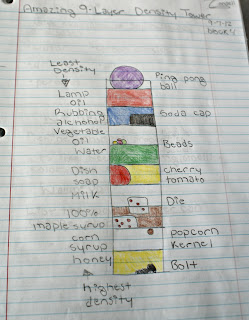 Amazing 9-Layer Density Tower
9-7-12
Least
Density
Ping pong
ball
Lamp
oil
Rubbing
alchohol
Soda cap
Vegetable
oil
Water
Beads
Dish
soap
cherry
tomato
Milk
100%
maple syrup
Die
corn
syrup
popcorn
Kernel
honey
Bolt
highest
density